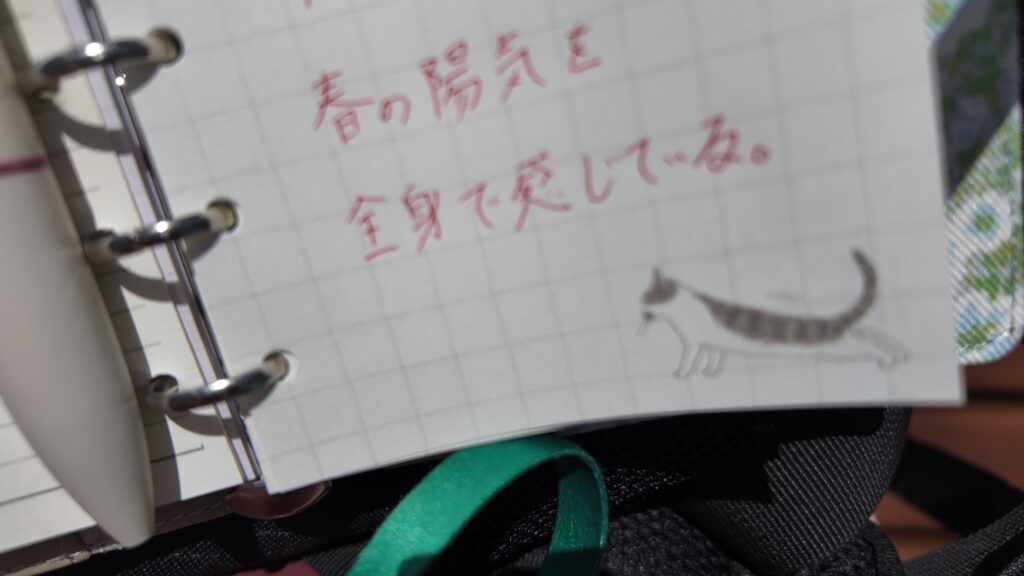 春の陽気を
全身で感じている。